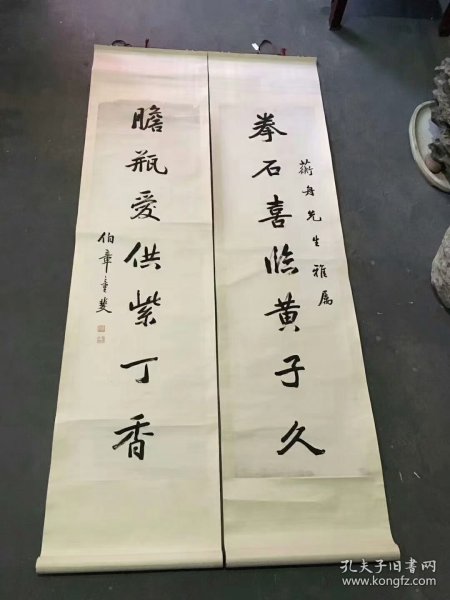 拳石喜临黄子久
蘅舟先生雅属
膽瓶爱供紫丁香
伯章童斐
孔夫子旧书网
www.kongfz.com